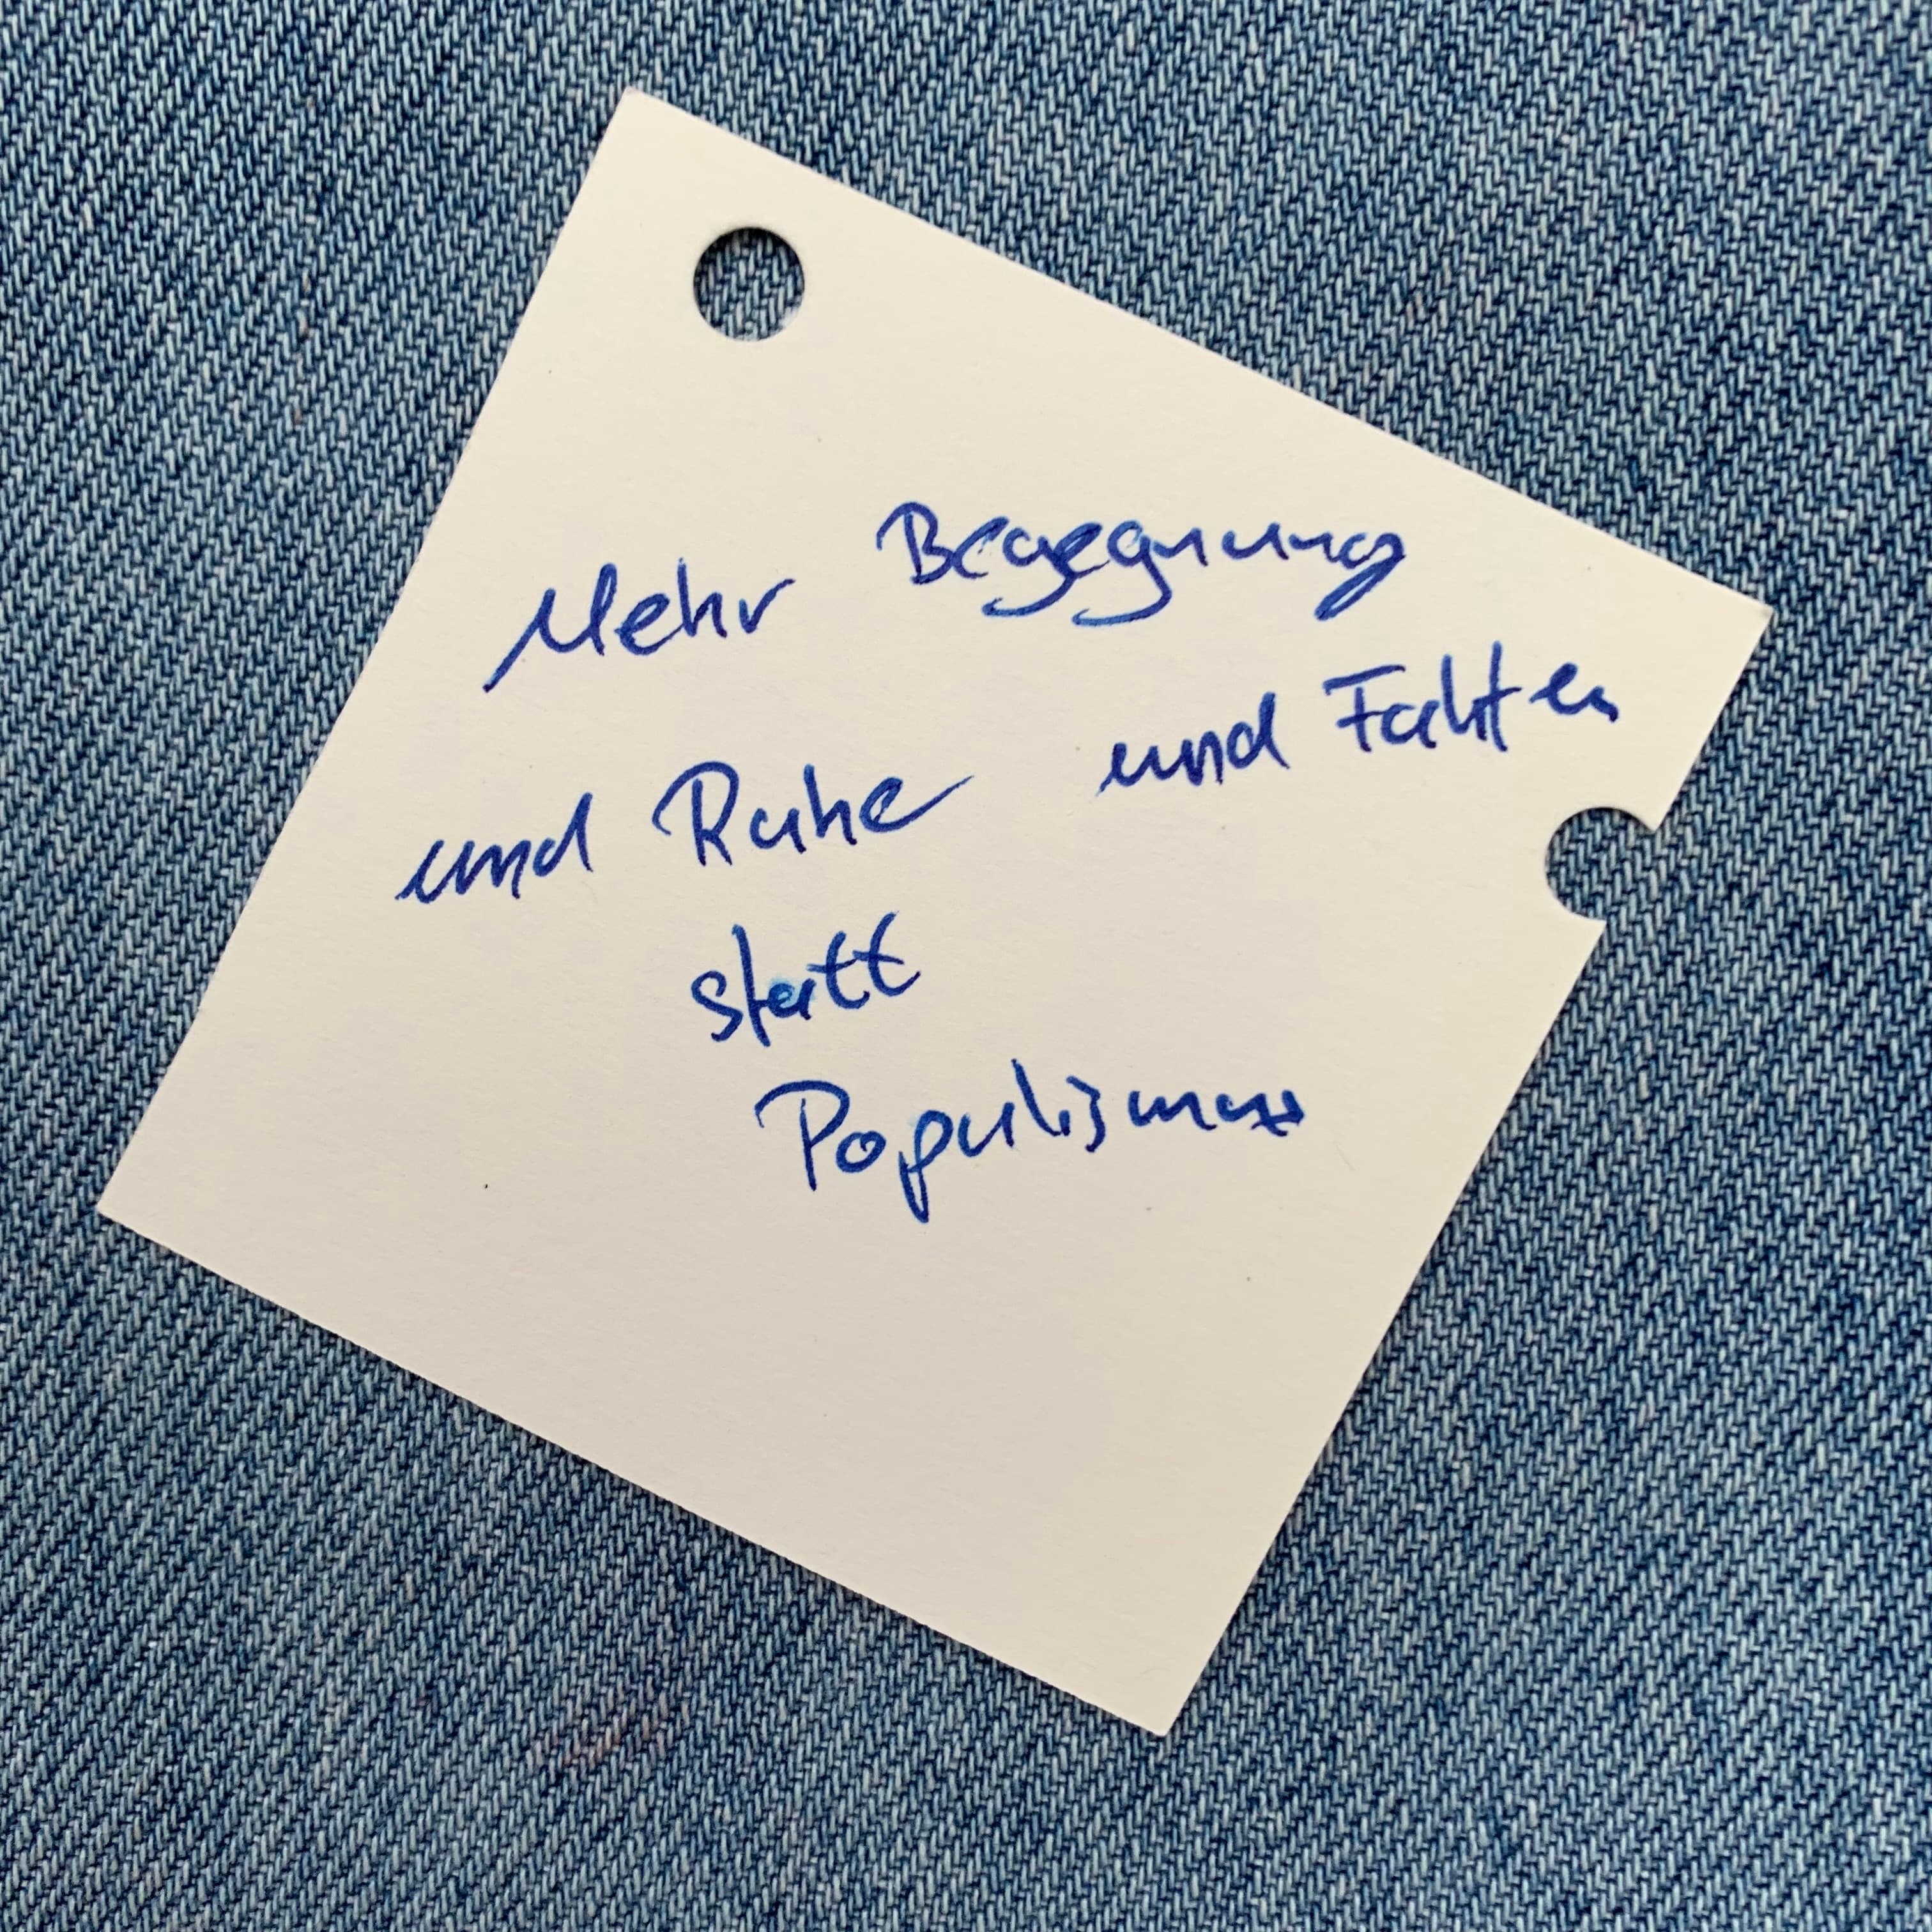 Mehr Begegnung
und Ruhe und Fakten
statt
Populismus